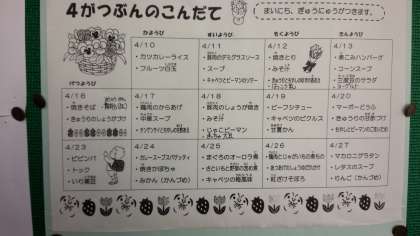 4がつぶんのこんだて
まいにち、ぎゅうにゅうがつきます。
げつようび
かようび
すいようび
もくようび
きんようび
4/10
・カツカレーライス
・フルーツ白玉
4/11
・豚肉のデミグラスソース
・スープ
・キャベツとピーマンのソテー
4/12
・焼きとり
・みそ汁
4/13
・煮こみハンバーグ
・コーンスープ
・三度豆のサラダ
・ヨーグルト
4/16
・焼きそば
4/17
・鶏肉のからあげ
・中華スープ
4/18
・豚肉のしょうが焼き
・みそ汁
・じゃこピーマン
4/19
・ビーフシチュー
・キャベツのピクルス
・甘夏かん
4/20
・マーボーどうふ
4/23
・ビビンバ
・トック
・いり黒豆
4/24
・カレースープスパゲッティ
・焼きかぼちゃ
・みかん(かんづめ)
4/25
・まぐろのオーロラ煮
・キャベツの梅風味
4/26
・鶏肉とじゃがいもの煮もの
・紅ざけそぼろ
4/27
・マカロニグラタン
・レタスのスープ
・りんご(かんづめ)